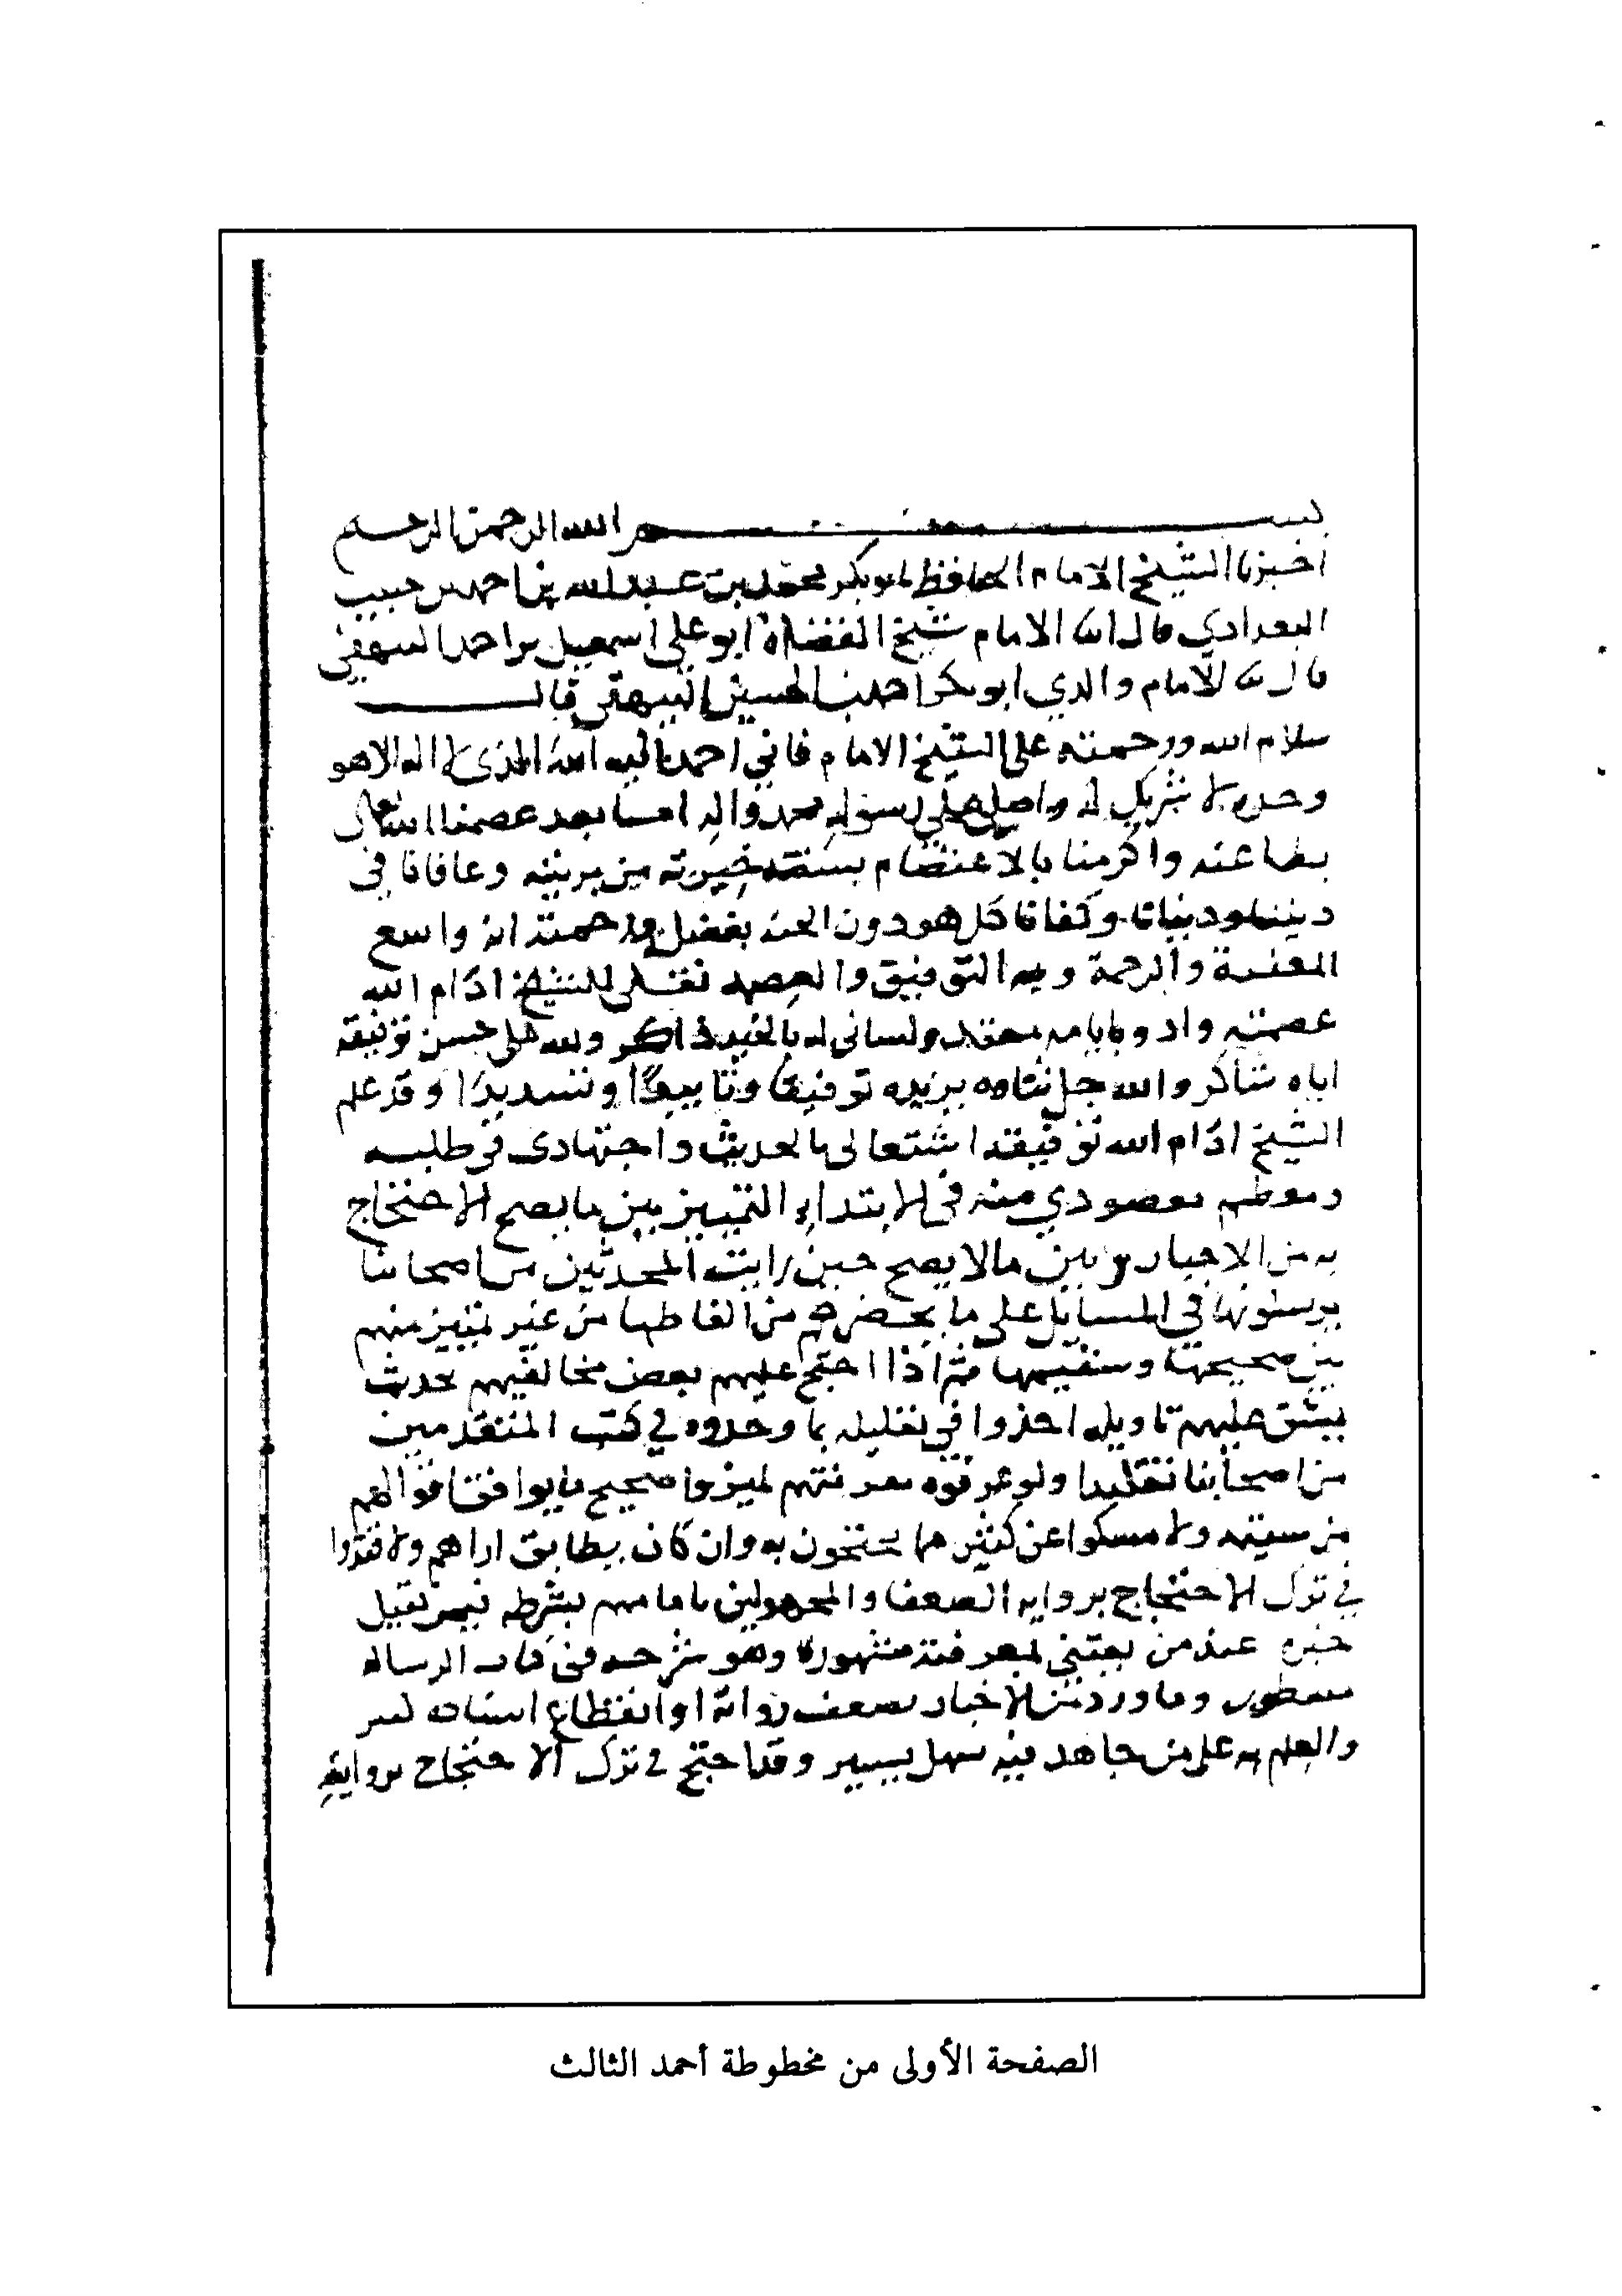 بسم الله الرحمن الرحيم
اخبرنا الشيخ الامام الحافظ ابوبكر محمد بن عبد الله بن احمد بن حبيب
البغدادي قال انا الامام شيخ القضاة ابو علي اسمعيل بن احمد البيهقي
قال انا الامام والدي ابو بكر احمد بن الحسين البيهقي قال
سلام الله ورحمته على الشيخ الامام فاني احمد اليه الله الذي لا اله الا هو
وحده لا شريك له واصلي على رسوله محمد واله اما بعد عصمنا الله تعالى
بطاعته واكرمنا بالاعتصام بسنة خيرته من بريته وعافانا في
ديننا ودنيانا وكفانا كل هو دون الجنة بفضله ورحمته انه واسع
المغفرة والرحمة وبه التوفيق والعصمة للشيخ ادام الله
عصمته ولساني له بالخير ذاكر ولله على حسن توفيقه
اياه شاكر والله جل ثناوه يزيده توفيقا وتاييدًا وتسديدًا وقد علم
الشيخ ادام الله توفيقه اشتغالي بالحديث واجتهادي في طلبه
ومعظم مقصودي منه في الابتداء التمييز بين ما يصح الاحتجاج
به من الاخبار وبين مالا يصح حين رايت المحدثين من اصحابنا
يرسلونها في المسايل على ما يحضرهم من الفاظها من غير تمييز منهم
بين صحيحها وسقيمها ثم اذا احتج عليهم بعض مخالفيهم بحديث
يشق عليهم تاويله اخذوا في تعليله بما وجدوه في كتب المتقدمين
من اصحابنا تقليدا ولو عرفوه معرفتهم لميزوا صحيح ما يوافق اقوالهم
من سقيمه ولامسكوا عن كثير مما يحتجون به وان كان يطابق اراهم ولاقتدوا
في ترك الاحتجاج برواية الضعفا والمجهولين بامامهم بشرطه فيمن تقبل
خبره عند من يعتني بمعرفته مشهورة وهو بشرحه في كتاب الرسالة
مسطور وما ورد من الاخبار بضعف رواته او انقطاع اسناده
والعلم به على من جاهد فيه سهل يسير وقد احتج في ترك الاحتجاج برواية
الصفحة الأولى من مخطوطة أحمد الثالث